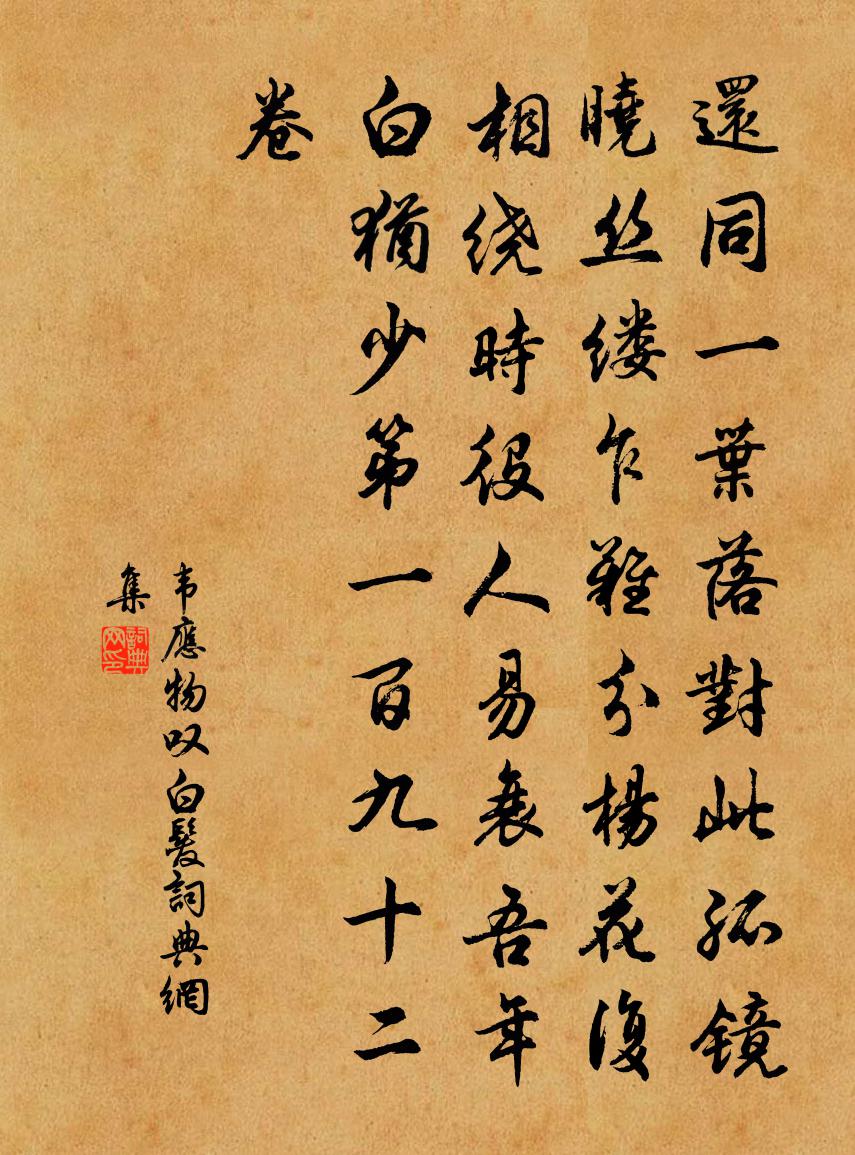 還同一葉落對此孤镜
曉丝缕乍難分楊花復
相绕時役人易衰吾年
白猶少第一百九十二
卷
韦應物叹白髮詞典網
集
詞典网印